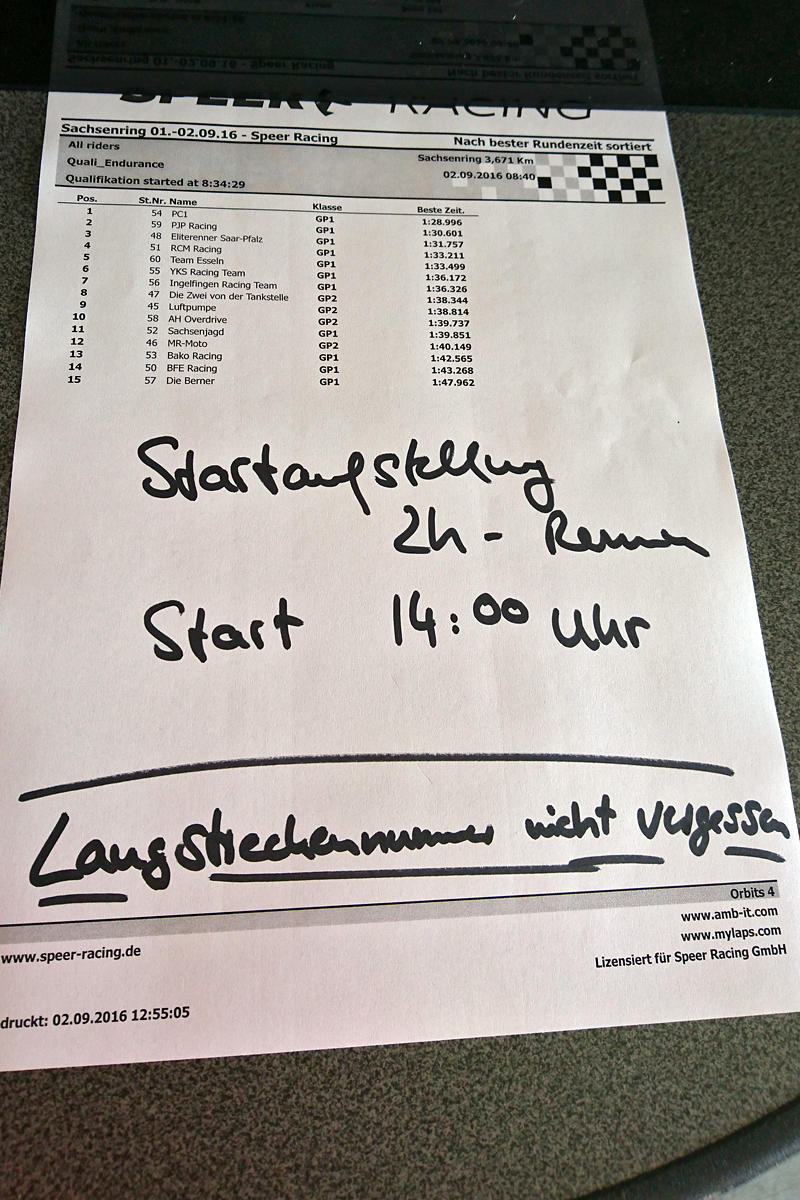 SPEER RACING
Sachsenring 01.-02.09.16 - Speer Racing Nach bester Rundenzeit sortiert
All riders Sachsenring 3,671 Km
Quali_Endurance 02.09.2016 08:40
Qualifikation started at 8:34:29
Pos. St.Nr. Name Klasse Beste Zeit.
1 54 PC1 GP1 1:28.996
2 59 PJP Racing GP1 1:30.601
3 48 Eliterenner Saar-Pfalz GP1 1:31.757
4 51 RCM Racing GP1 1:33.211
5 60 Team Esseln GP1 1:33.499
6 55 YKS Racing Team GP1 1:36.172
7 56 Ingelfingen Racing Team GP1 1:36.326
8 47 Die Zwei von der Tankstelle GP2 1:38.344
9 45 Luftpumpe GP2 1:38.814
10 58 AH Overdrive GP2 1:39.737
11 52 Sachsenjagd GP1 1:39.851
12 46 MR-Moto GP2 1:40.149
13 53 Bako Racing GP1 1:42.565
14 50 BFE Racing GP1 1:43.268
15 57 Die Berner GP1 1:47.962
Startaufstellung
2h - Rennen
Start 14:00 Uhr
Langstreckennummer nicht vergessen
Orbits 4
www.amb-it.com
www.mylaps.com
www.speer-racing.de Lizensiert für Speer Racing GmbH
druckt: 02.09.2016 12:55:05